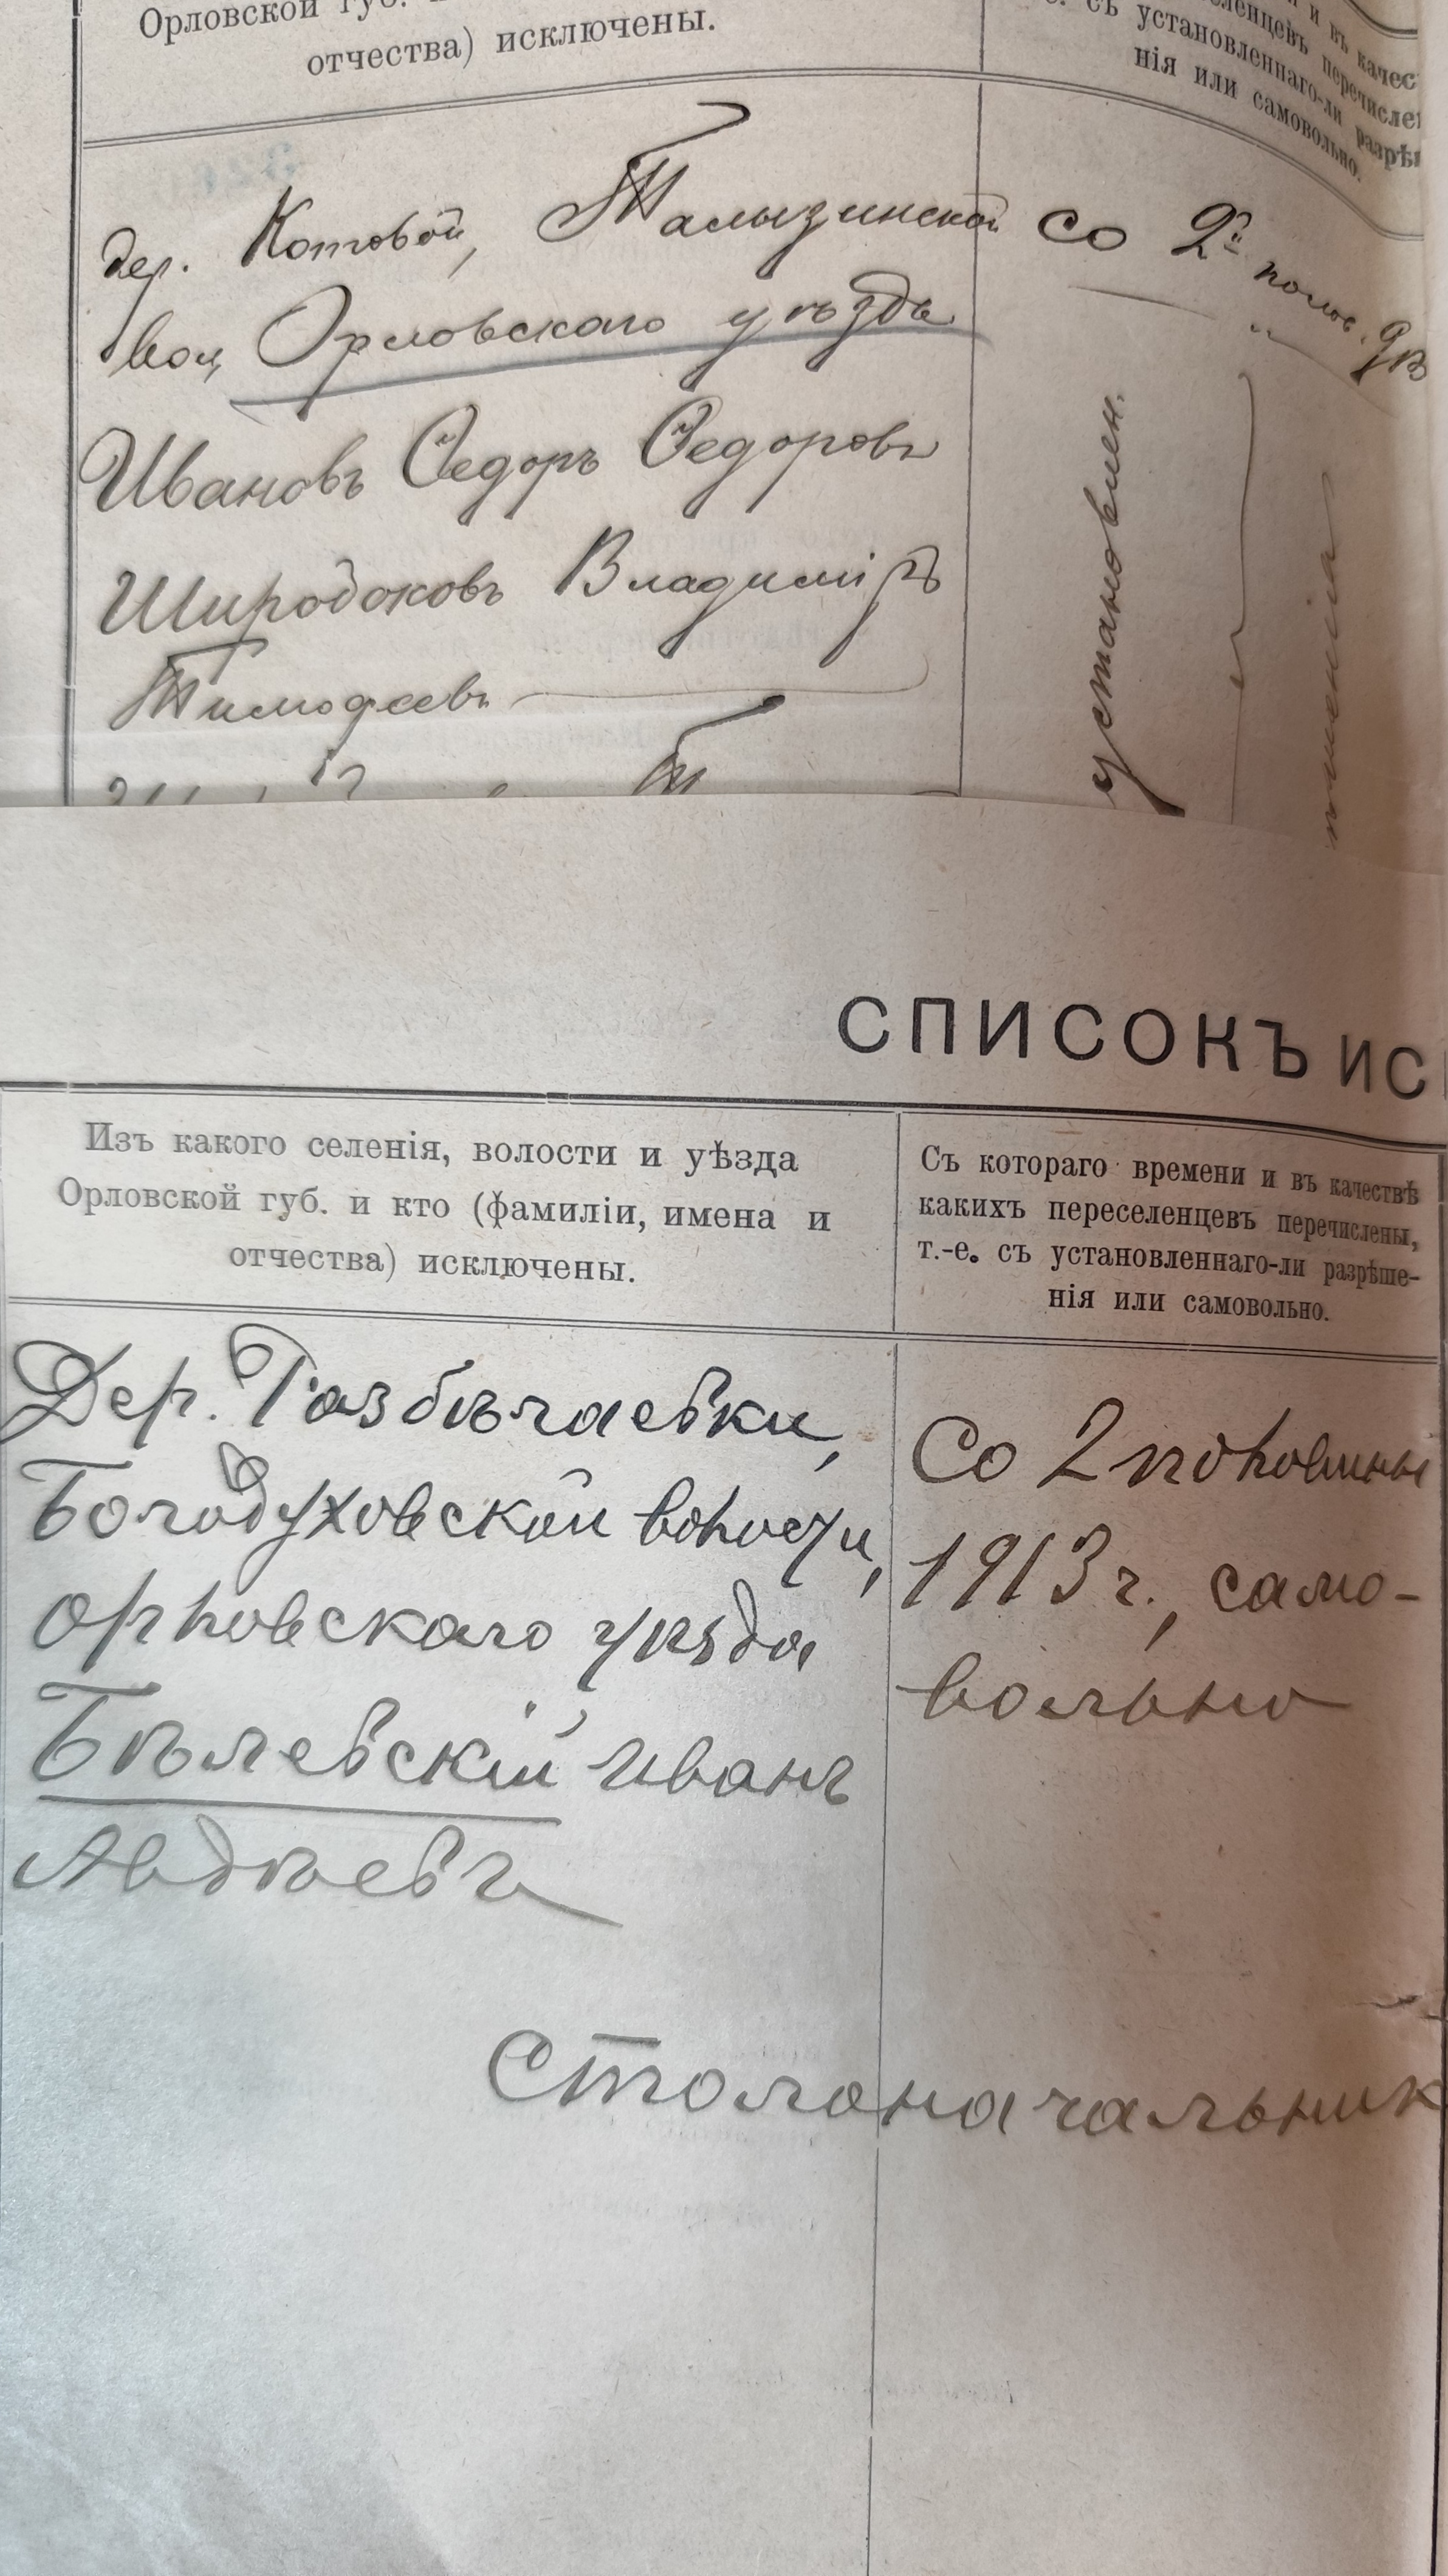 Орловской губ.
отчества) исключены.
и въ качес
съ установленнаго-ли разрѣш
нія или самовольно.
дер. Котовой, Талызинской
вол, Орловскаго уѣзда
со 2й полов.
Ивановъ Ѳедоръ Ѳедоровъ
Широбоковъ Владиміръ
Тимофеевъ
установлен.
СПИСОКЪ ИС
Изъ какого селенія, волости и уѣзда
Орловской губ. и кто (фамиліи, имена и
отчества) исключены.
Съ котораго времени и въ качествѣ
какихъ переселенцевъ перечислены,
т.-е. съ установленнаго-ли разрѣше-
нія или самовольно.
Дер. Разбѣгаевки,
Богодуховской волости,
Орловскаго уѣзда
Бѣлевскій Иванъ
Авдѣевъ
Со 2 половины
1913 г., само-
вольно
Столоначальник